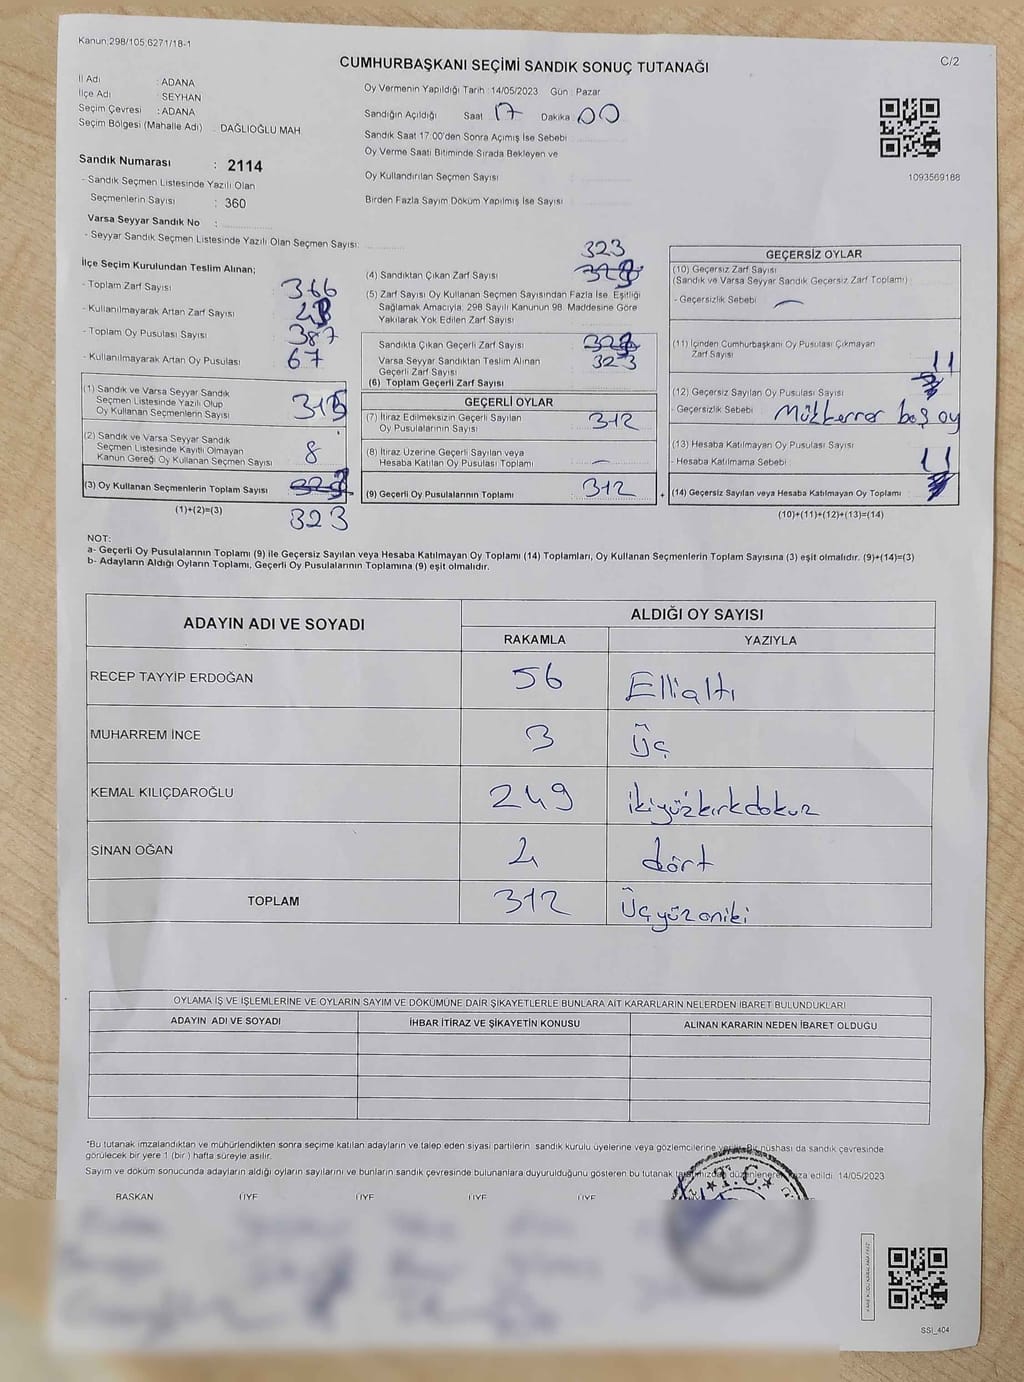 Kanun:298/105,6271/18-1
C/2
CUMHURBAŞKANI SEÇİMİ SANDIK SONUÇ TUTANAĞI
İl Adı : ADANA
İlçe Adı : SEYHAN
Seçim Çevresi : ADANA
Seçim Bölgesi (Mahalle Adı) : DAĞLIOĞLU MAH.
Oy Vermenin Yapıldığı Tarih :14/05/2023 Gün : Pazar
Sandığın Açıldığı Saat 17 Dakika 00
Sandık Saat 17:00'den Sonra Açımış İse Sebebi
Oy Verme Saati Bitiminde Sırada Bekleyen ve
Oy Kullandırılan Seçmen Sayısı
Birden Fazla Sayım Döküm Yapılmış İse Sayısı
1093569188
Sandık Numarası : 2114
- Sandık Seçmen Listesinde Yazılı Olan
Seçmenlerin Sayısı : 360
Varsa Seyyar Sandık No :
- Seyyar Sandık Seçmen Listesinde Yazılı Olan Seçmen Sayısı:
İlçe Seçim Kurulundan Teslim Alınan;
- Toplam Zarf Sayısı 366
- Kullanılmayarak Artan Zarf Sayısı
- Toplam Oy Pusulası Sayısı 387
- Kullanılmayarak Artan Oy Pusulası 67
(1) Sandık ve Varsa Seyyar Sandık
Seçmen Listesinde Yazılı Olup
Oy Kullanan Seçmenlerin Sayısı 315
(2) Sandık ve Varsa Seyyar Sandık
Seçmen Listesinde Kayıtlı Olmayan
Kanun Gereği Oy Kullanan Seçmen Sayısı 8
(3) Oy Kullanan Seçmenlerin Toplam Sayısı
(1)+(2)=(3)
323
323
(4) Sandıktan Çıkan Zarf Sayısı
(5) Zarf Sayısı Oy Kullanan Seçmen Sayısından Fazla İse, Eşitliği
Sağlamak Amacıyla, 298 Sayılı Kanunun 98. Maddesine Göre
Yakılarak Yok Edilen Zarf Sayısı
Sandıkta Çıkan Geçerli Zarf Sayısı
Varsa Seyyar Sandıktan Teslim Alınan 323
Geçerli Zarf Sayısı
(6) Toplam Geçerli Zarf Sayısı
GEÇERLİ OYLAR
(7) İtiraz Edilmeksizin Geçerli Sayılan
Oy Pusulalarının Sayısı 312
(8) İtiraz Üzerine Geçerli Sayılan veya
Hesaba Katılan Oy Pusulası Toplamı
(9) Geçerli Oy Pusulalarının Toplamı 312
GEÇERSİZ OYLAR
(10) Geçersiz Zarf Sayısı
(Sandık ve Varsa Seyyar Sandık Geçersiz Zarf Toplamı)
- Geçersizlik Sebebi :
(11) İçinden Cumhurbaşkanı Oy Pusulası Çıkmayan
Zarf Sayısı
11
(12) Geçersiz Sayılan Oy Pusulası Sayısı
- Geçersizlik Sebebi : Mükerrer boş oy
(13) Hesaba Katılmayan Oy Pusulası Sayısı
- Hesaba Katılmama Sebebi :
11
+ (14) Geçersiz Sayılan veya Hesaba Katılmayan Oy Toplamı
(10)+(11)+(12)+(13)=(14)
NOT:
a- Geçerli Oy Pusulalarının Toplamı (9) ile Geçersiz Sayılan veya Hesaba Katılmayan Oy Toplamı (14) Toplamları, Oy Kullanan Seçmenlerin Toplam Sayısına (3) eşit olmalıdır. (9)+(14)=(3)
b- Adayların Aldığı Oyların Toplamı, Geçerli Oy Pusulalarının Toplamına (9) eşit olmalıdır.
ADAYIN ADI VE SOYADI
ALDIĞI OY SAYISI
RAKAMLA YAZIYLA
RECEP TAYYİP ERDOĞAN 56 Ellialtı
MUHARREM İNCE 3 Üç
KEMAL KILIÇDAROĞLU 249 ikiyüzkırkdokuz
SİNAN OĞAN 4 dört
TOPLAM 312 Üçyüzoniki
OYLAMA İŞ VE İŞLEMLERİNE VE OYLARIN SAYIM VE DÖKÜMÜNE DAİR ŞİKAYETLERLE BUNLARA AİT KARARLARIN NELERDEN İBARET BULUNDUKLARI
ADAYIN ADI VE SOYADI İHBAR İTİRAZ VE ŞİKAYETİN KONUSU ALINAN KARARIN NEDEN İBARET OLDUĞU
*Bu tutanak imzalandıktan ve mühürlendikten sonra seçime katılan adayların ve talep eden siyasi partilerin sandık kurulu üyelerine veya gözlemcilerine verilir. Bir nüshası da sandık çevresinde
görülecek bir yere 1 (bir ) hafta süreyle asılır.
Sayım ve döküm sonucunda adayların aldığı oyların sayılarını ve bunların sandık çevresinde bulunanlara duyurulduğunu gösteren bu tutanak tarafımızdan düzenlenerek imza edildi. 14/05/2023
BAŞKAN ÜYE ÜYE ÜYE ÜYE
T.C.
SSİ_404